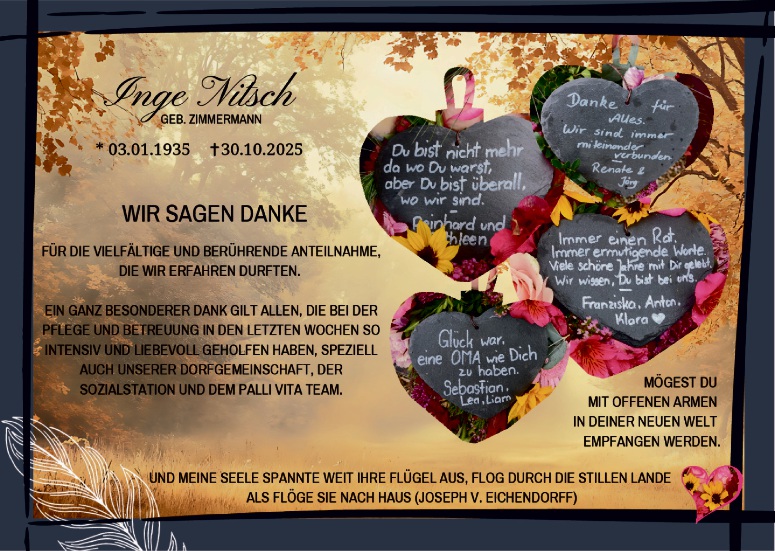 Inge Nitsch
GEB. ZIMMERMANN
* 03.01.1935 †30.10.2025
WIR SAGEN DANKE
FÜR DIE VIELFÄLTIGE UND BERÜHRENDE ANTEILNAHME,
DIE WIR ERFAHREN DURFTEN.
EIN GANZ BESONDERER DANK GILT ALLEN, DIE BEI DER
PFLEGE UND BETREUUNG IN DEN LETZTEN WOCHEN SO
INTENSIV UND LIEBEVOLL GEHOLFEN HABEN, SPEZIELL
AUCH UNSERER DORFGEMEINSCHAFT, DER
SOZIALSTATION UND DEM PALLI VITA TEAM.
Du bist nicht mehr
da wo Du warst,
aber Du bist überall,
wo wir sind.
Reinhard und
Danke für
Alles.
Wir sind immer
miteinander
verbunden
Renate &
Jörg
Immer einen Rat,
Immer ermutigende Worte.
Viele schöne Jahre mit Dir gelebt,
Wir wissen, Du bist bei uns.
Franziska, Anton,
Klara
Glück war,
eine OMA wie Dich
zu haben.
Sebastian,
Lea, Liam
MÖGEST DU
MIT OFFENEN ARMEN
IN DEINER NEUEN WELT
EMPFANGEN WERDEN.
UND MEINE SEELE SPANNTE WEIT IHRE FLÜGEL AUS, FLOG DURCH DIE STILLEN LANDE
ALS FLÖGE SIE NACH HAUS (JOSEPH V. EICHENDORFF)